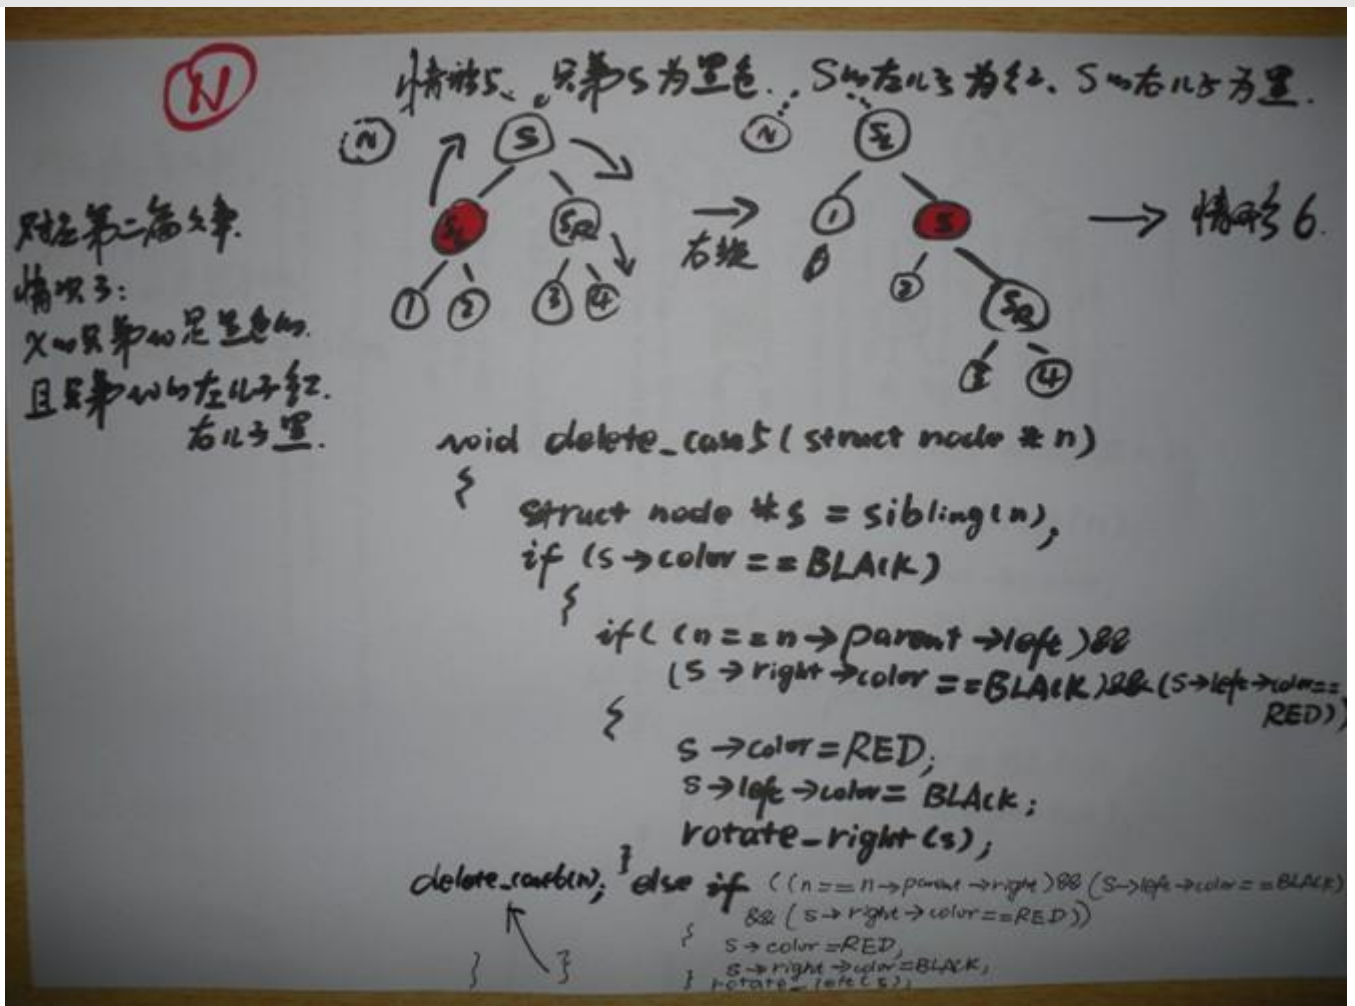 N
情形5、兄弟S为黑色、S的左儿子为红、S的右儿子为黑.
N S N SL
SL SR 1 S
右旋
情形6.
1 2 3 4 2 SR
3 4
对应第二篇文章.
情况3:
X的兄弟w是黑色的.
且兄弟w的左儿子红.
右儿子黑.
void delete_case5(struct node *n)
{
struct node *s = sibling(n);
if (s→color==BLACK)
{
if( (n==n→parent→left)&&
(s→right→color==BLACK)&&(s→left→color==
RED))
{
s→color=RED;
s→left→color=BLACK;
rotate_right(s);
delete_case6(n); } else if ((n==n→parent→right)&&(s→left→color==BLACK)
&&(s→right→color==RED))
{ s→color=RED,
s→right→color=BLACK,
} } } rotate_left(s);